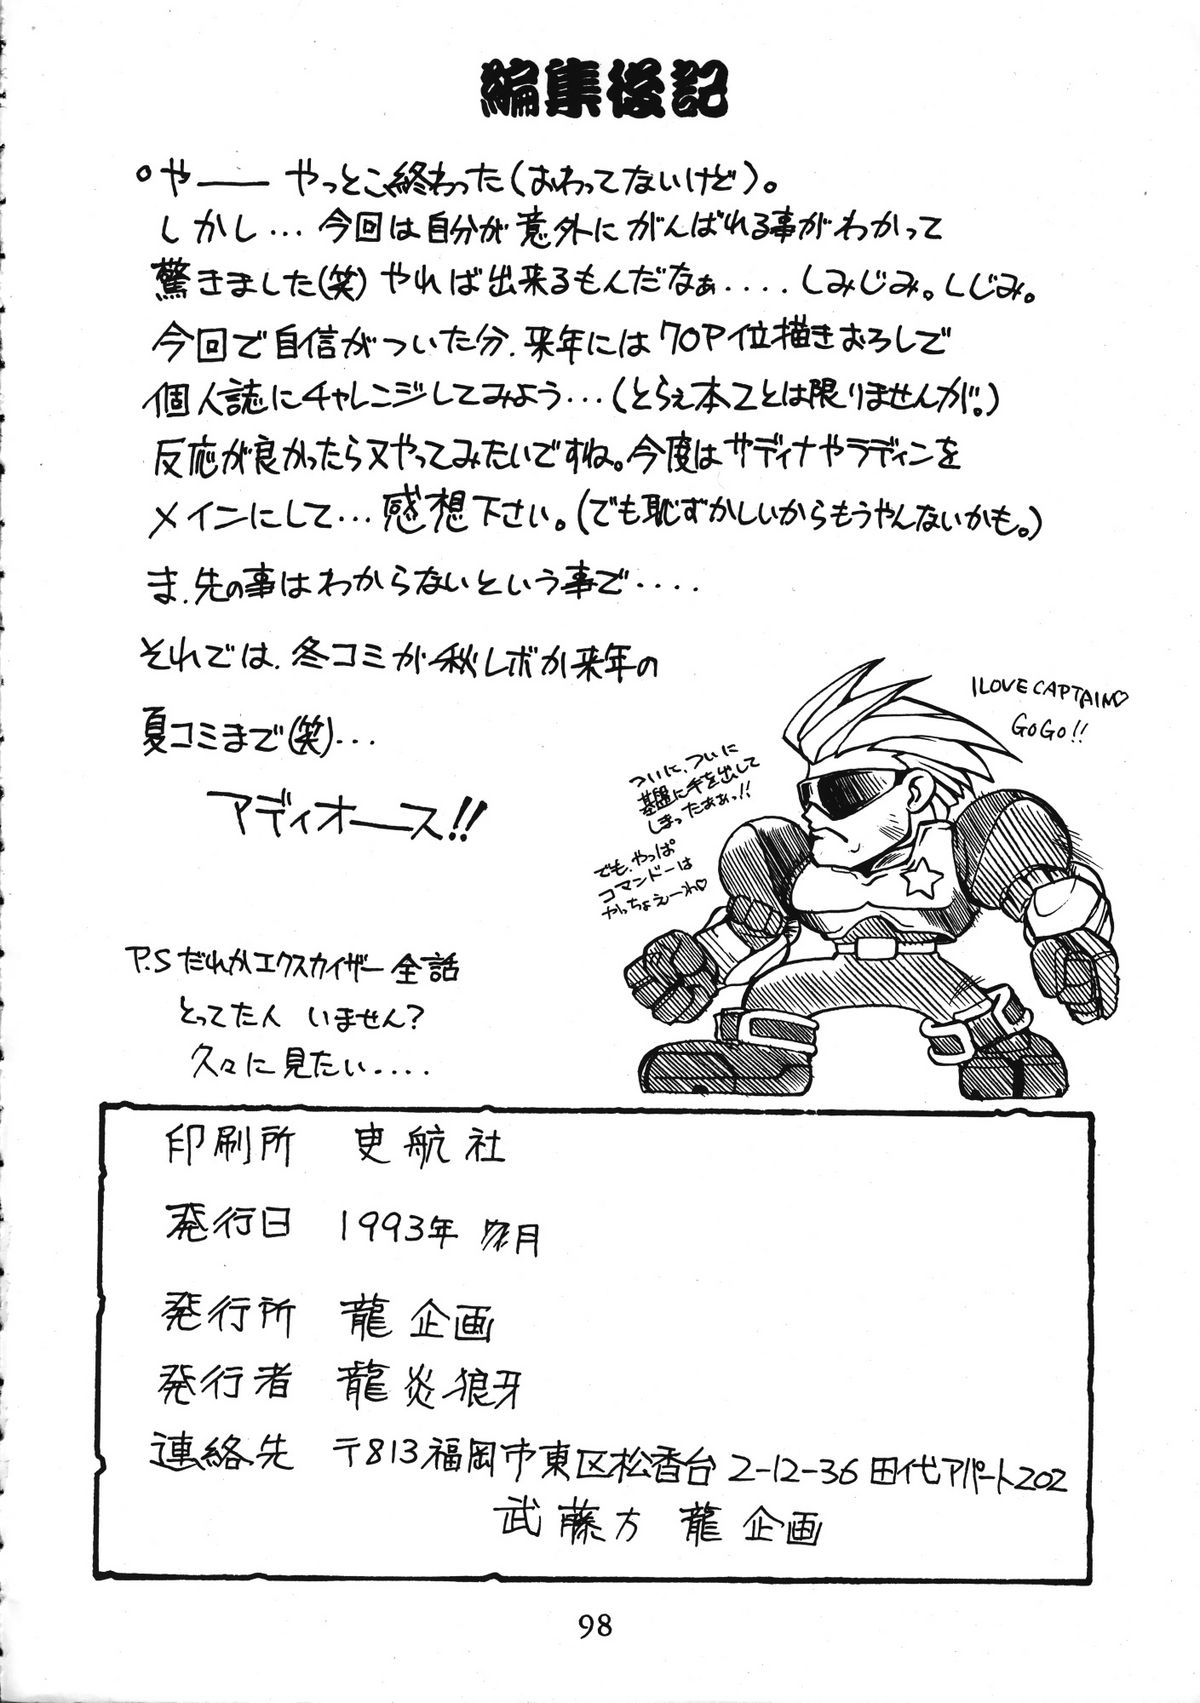 編集後記
○や―― やっとこ終わった(おわってないけど)。
しかし…今回は自分が意外にがんばれる事がわかって
驚きました(笑)やれば出来るもんだなぁ....しみじみ。しじみ。
今回で自信がついた分、来年には70P位描きおろしで
個人誌にチャレンジしてみよう…(とらぇ本2とは限りませんが。)
反応が良かったら又やってみたいですね。今度はサディナやラディンを
メインにして…感想下さい。(でも恥ずかしいからもうやんないかも。)
ま、先の事はわからないという事で....
それでは、冬コミか秋レボか来年の
夏コミまで(笑)…
アディオース!!
I LOVE CAPTAIN♡
GO GO!!
ついに、ついに
基盤に手を出して
しまったぁぁっ!!
でも、やっぱ
コマンドーは
やっちょえーわ♡
P.S だれかエクスカイザー全話
とってた人 いません?
久々に見たい....
印刷所 史航社
発行日 1993年 月
発行所 龍企画
発行者 龍炎狼牙
連絡先 〒813福岡市東区松香台2-12-36田代アパート202
武藤方 龍企画
98